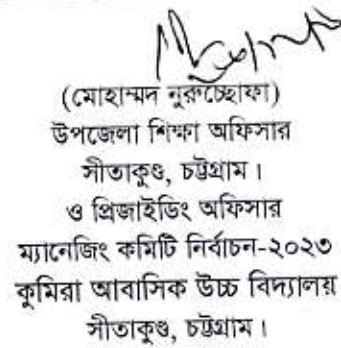 (মোহাম্মদ নুরুচ্ছোফা)
উপজেলা শিক্ষা অফিসার
সীতাকুণ্ড, চট্টগ্রাম।
ও প্রিজাইডিং অফিসার
ম্যানেজিং কমিটি নির্বাচন-২০২৩
কুমিরা আবাসিক উচ্চ বিদ্যালয়
সীতাকুণ্ড, চট্টগ্রাম।